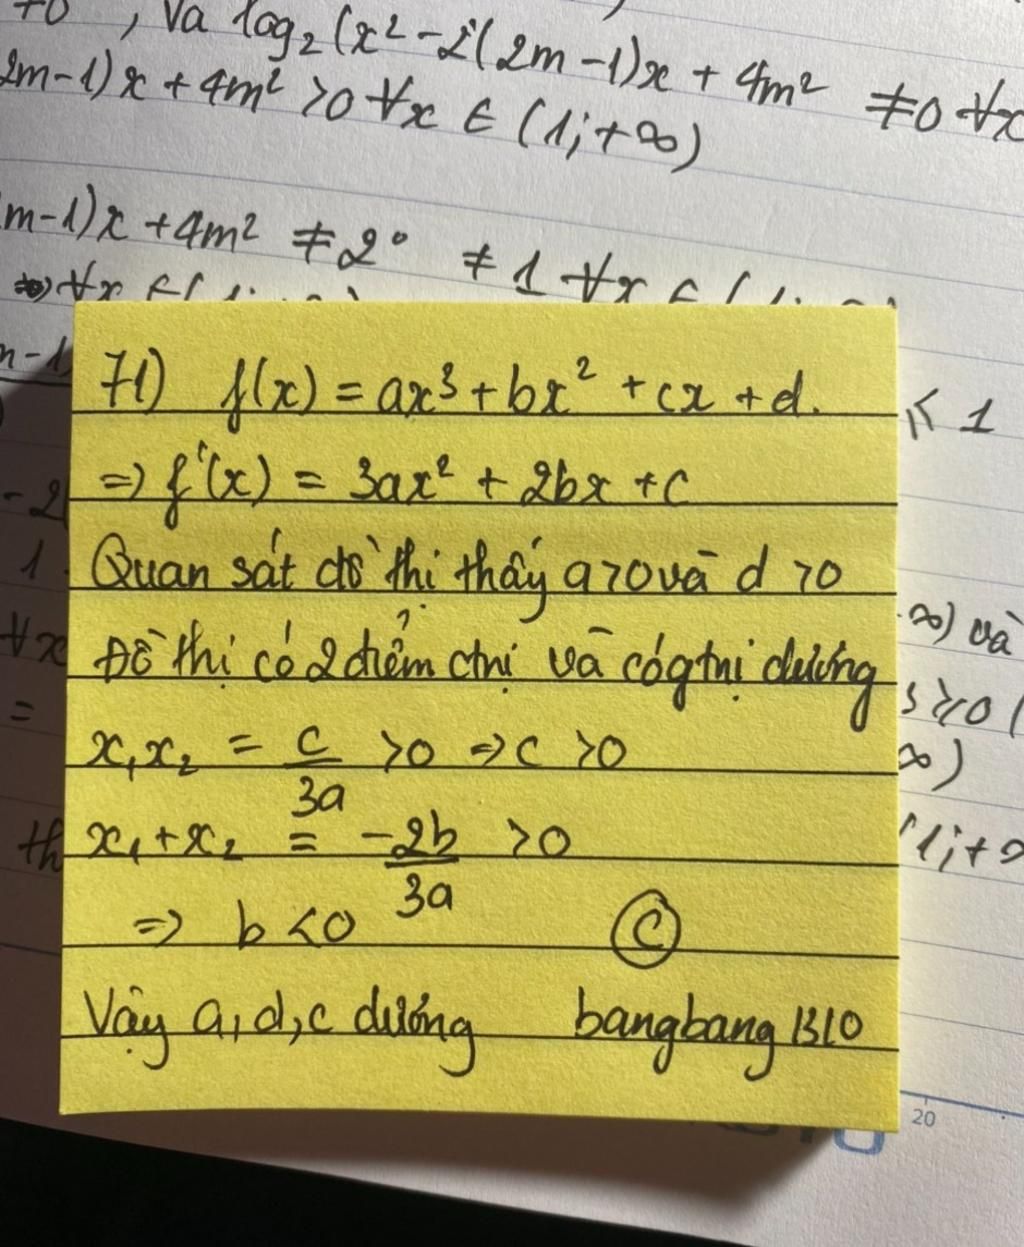 , và log₂(x² - 2(2m - 1)x + 4m² ≠ 0 ∀x
2m - 1)x + 4m² > 0 ∀x ∈ (1; +∞)
m - 1)x + 4m² ≠ 2⁰ ≠ 1 ∀x ∈ (
71) f(x) = ax³ + bx² + cx + d.
⩽ 1
=> f'(x) = 3ax² + 2bx + c
- 2
Quan sát đồ thị thấy a > 0 và d > 0
1
Đồ thị có 2 điểm ctrị và có gtrị dương
∞) và
∀x
x₁x₂ = c/3a > 0 => c > 0
=
⩾ 0 (
∞)
x₁ + x₂ = -2b/3a > 0
th
(1; +∞
=> b < 0
Ⓒ
Vậy a, d, c dương
bangbang 1310
20